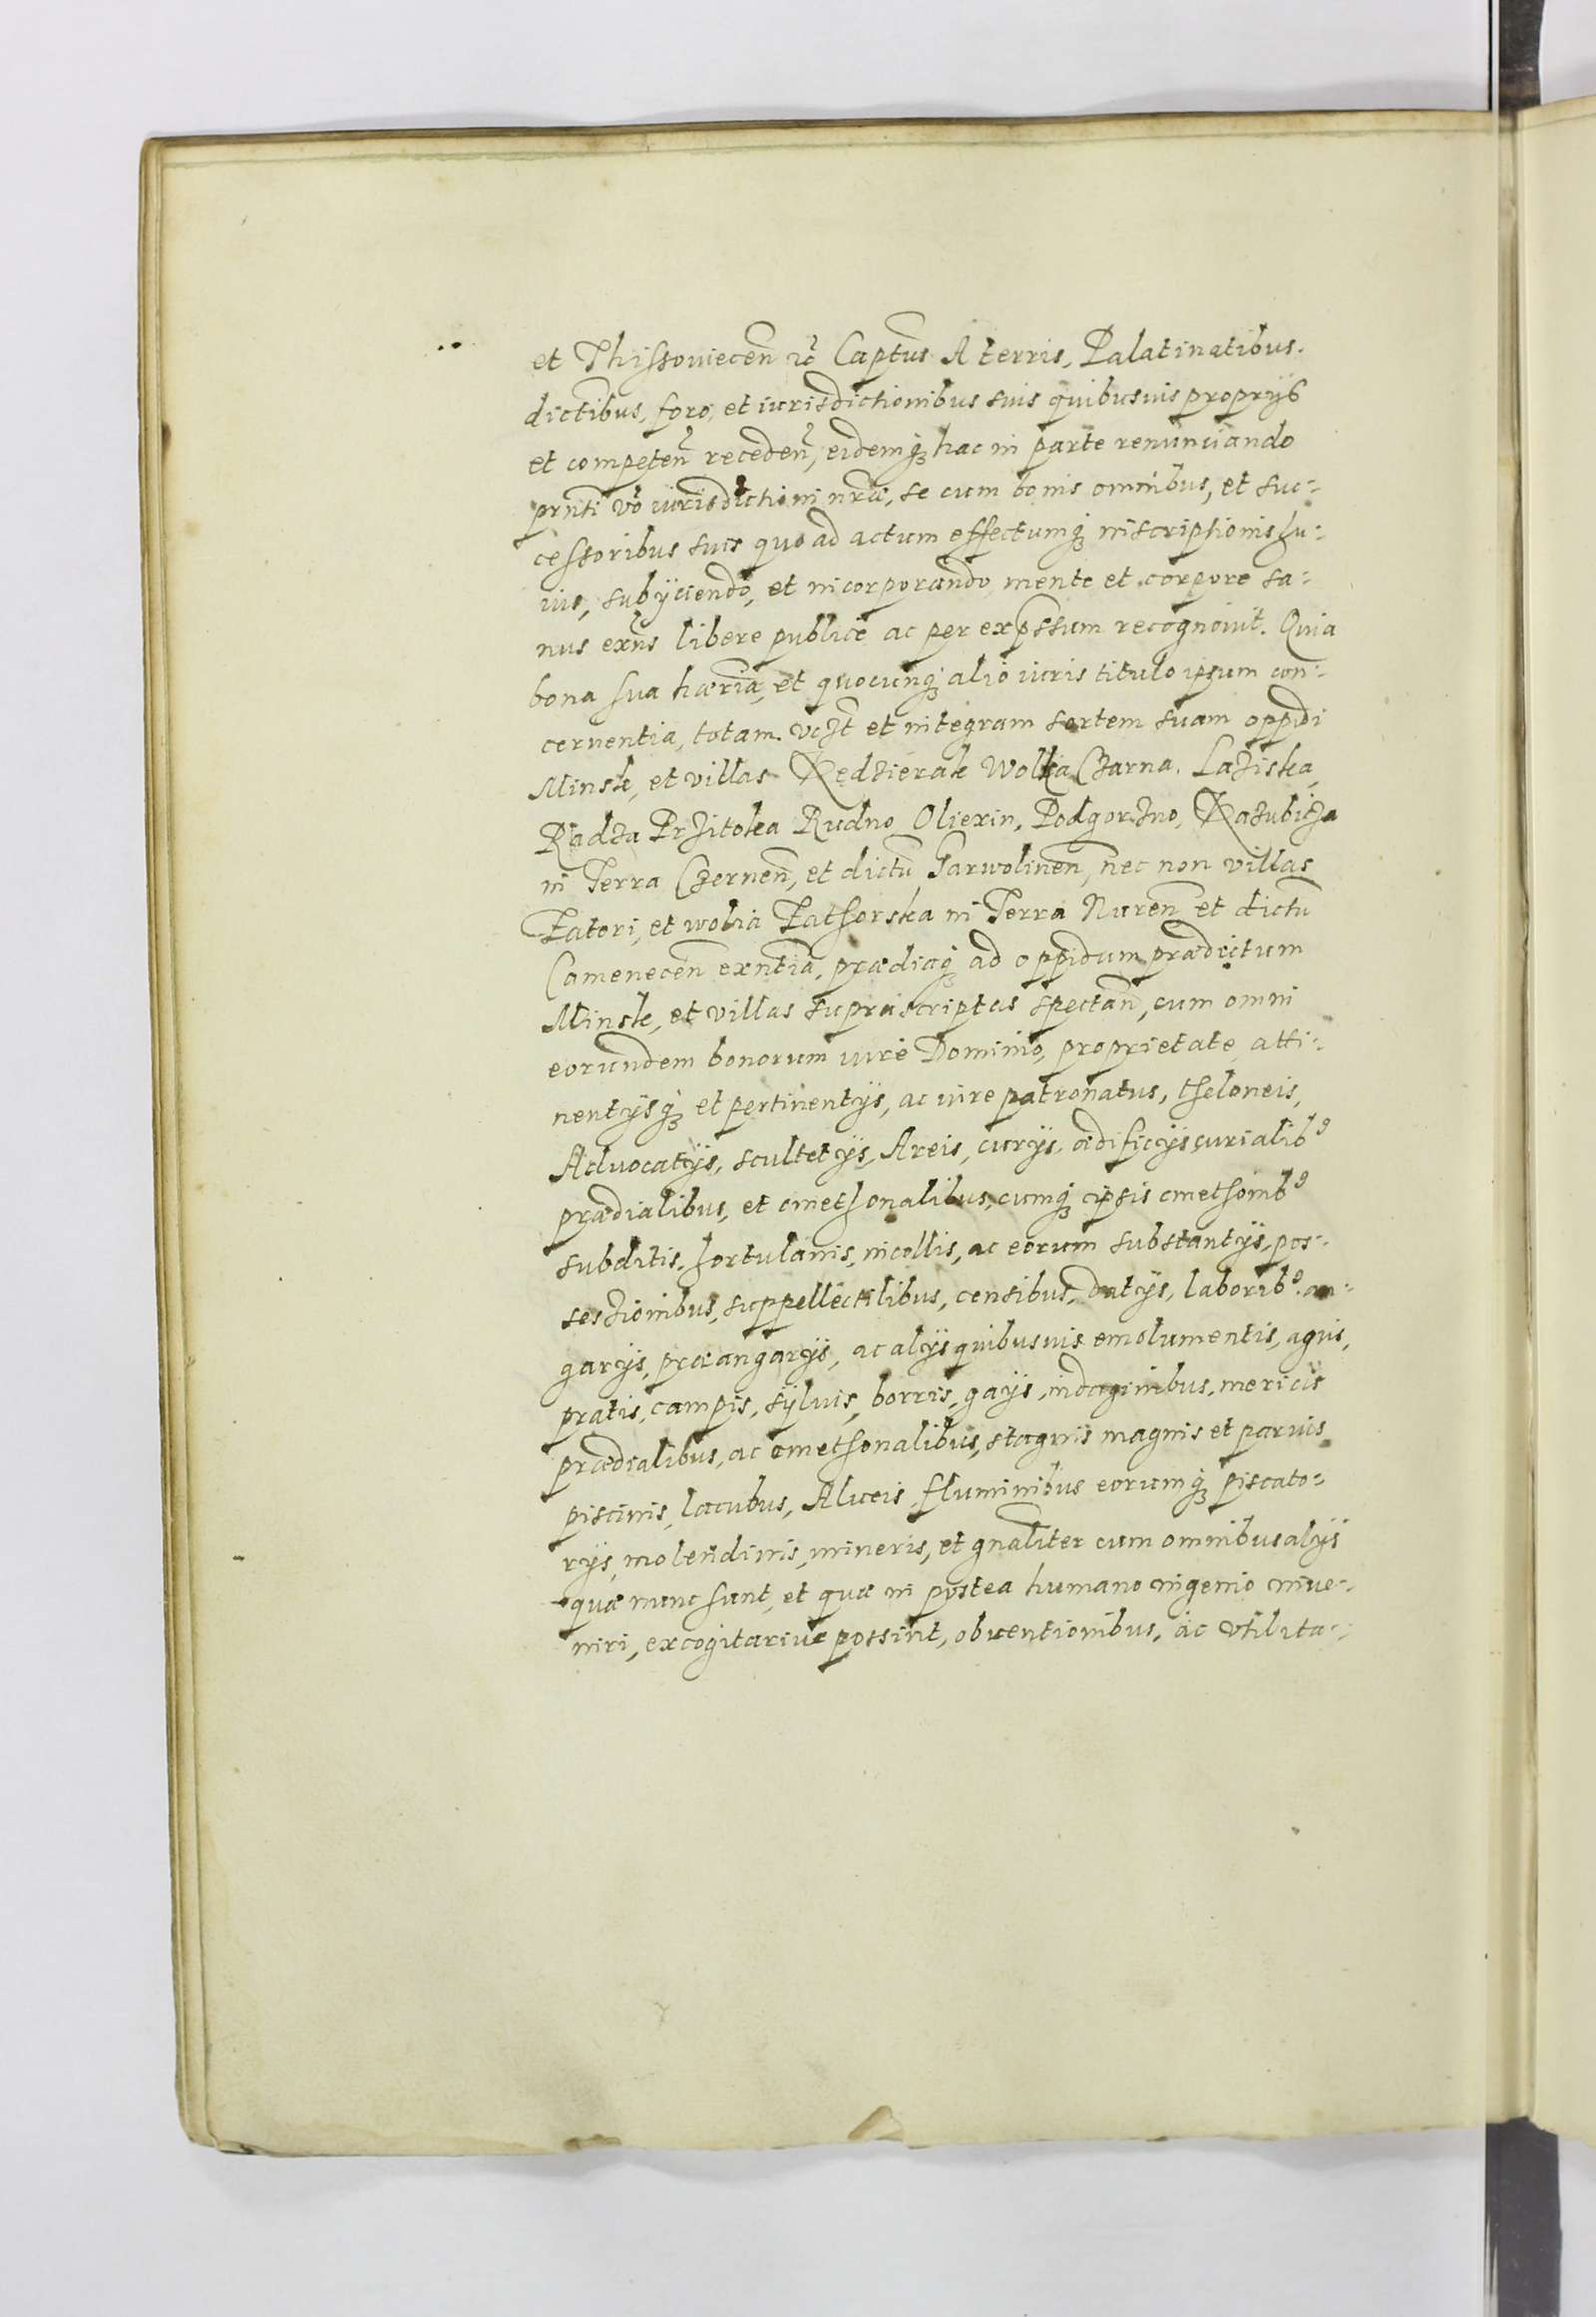 et Thissoviecen̄ zc̄ Captūs A terris, Palatinatibus.
dictibus, foro, et iurisdictionibus suis quibusuis proprÿs
et competen̄ receden̄, eidemq₃ hac in parte renunciando
prn̄ti vō iurisdictioni nr̄æ, se cum bonis omnibus, et suc-
cessoribus suis quo ad actum effectumq₃ inscriptionis hu-
ius, subÿciendo, et incorporando mente et corpore sa-
nus exn̄s libere publice ac per exp̄ssum recognouit. Quia
bona sua hæria, et quocunq₃ alio iuris titulo ipsum con-
cernentia, totam. vczt et integram sortem suam oppidi
Minsk, et villas Kędzierak Wolka Czarna, Laziska,
Rądza Przitoka Rudno Oliexin, Podgorzno, Kazubicza
in Terra Czernen̄, et dictū Garwolinen̄, nec non villas
Zatori, et wolia Zathorska in Terra Nuren̄ et dictū
Camenecen̄ exn̄tia, prædiaq₃ ad oppidum prædictum
Minsk, et villas suprascriptas spectan̄, cum omni
eorundem bonorum iure Dominio, proprietate, atti-
nentÿsq₃ et pertinentÿs, ac iure patronatus, theloneis,
Aduocatÿs, scultetÿs, Areis, curÿs, ædificÿs curialib⁹
prædialibus, et cmethonalibus, cumq₃ ipsis cmethonib⁹
subditis, hortulanis, incollis, ac eorum substantÿs, pos-
sessionibus, suppellectilibus, censibus, datÿs, laborib⁹ an-
garÿs, præangarÿs, ac alÿs quibusuis emolumentis, agris,
pratis, campis, sÿluis, borris, gaÿs, indaginibus, mericis
prædialibus, ac cmethonalibus, stagnis magnis et paruis
piscinis, lacubus, Alueis, fluminibus eorumq₃ piscato-
rÿs, molendinis, mineris, et gn̄aliter cum omnibus alÿs
quæ nunc sunt, et quæ in postea humano ingenio inue-
niri, excogitariue possint, obuentionibus, ac vtilita-